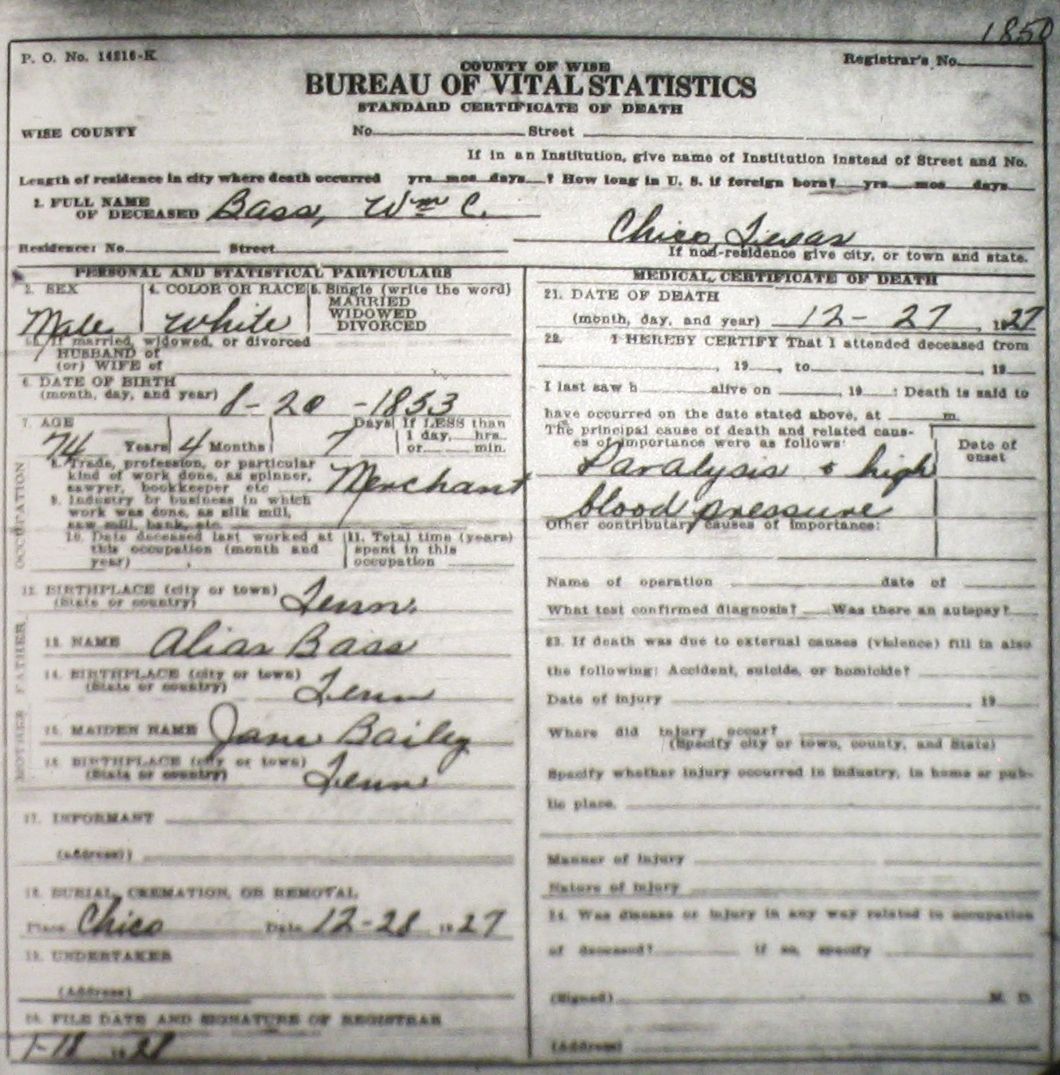 1850
P. O. No. 14216-K
Registrar's No.
COUNTY OF WISE
BUREAU OF VITAL STATISTICS
STANDARD CERTIFICATE OF DEATH
WISE COUNTY No. Street
If in an Institution, give name of Institution instead of Street and No.
Length of residence in city where death occurred yrs mos days ? How long in U. S. if foreign born? yrs mos days
2. FULL NAME
OF DECEASED Bass, Wm C.
Chico Texas
Residence: No. Street
If non-residence give city, or town and state.
PERSONAL AND STATISTICAL PARTICULARS
3. SEX 4. COLOR OR RACE 5. Single (write the word)
MARRIED
WIDOWED
DIVORCED
Male White
If married, widowed, or divorced
HUSBAND of
(or) WIFE of
6. DATE OF BIRTH
(month, day, and year) 8-20-1853
7. AGE Days If LESS than
1 day, hrs.
74 Years 4 Months 7 or min.
OCCUPATION
8. Trade, profession, or particular
kind of work done, as spinner,
sawyer, bookkeeper etc Merchant
9. Industry or business in which
work was done, as silk mill,
saw mill, bank, etc.
10. Date deceased last worked at
this occupation (month and
year)
11. Total time (years)
spent in this
occupation
12. BIRTHPLACE (city or town)
(State or country) Tenn.
FATHER
13. NAME Alias Bass
14. BIRTHPLACE (city or town)
(State or country) Tenn
MOTHER
15. MAIDEN NAME Jane Bailey
16. BIRTHPLACE (city or town)
(State or country) Tenn
17. INFORMANT
(Address)
18. BURIAL, CREMATION, OR REMOVAL
Place Chico Date 12-28 1927
19. UNDERTAKER
(Address)
20. FILE DATE AND SIGNATURE OF REGISTRAR
1-18 1928
MEDICAL CERTIFICATE OF DEATH
21. DATE OF DEATH
(month, day, and year) 12-27, 1927
22. I HEREBY CERTIFY That I attended deceased from
, 19 , to , 19
I last saw h alive on , 19 : Death is said to
have occurred on the date stated above, at m.
The principal cause of death and related caus-
es of importance were as follows:
Date of
onset
Paralysis & high
blood pressure
Other contributary causes of importance:
Name of operation date of
What test confirmed diagnosis? Was there an autopsy?
23. If death was due to external causes (violence) fill in also
the following: Accident, suicide, or homicide?
Date of injury 19
Where did injury occur?
(Specify city or town, county, and State)
Specify whether injury occurred in industry, in home or pub-
lic place.
Manner of injury
Nature of injury
24. Was disease or injury in any way related to occupation
of deceased? If so, specify
(Signed) M. D.
(Address)